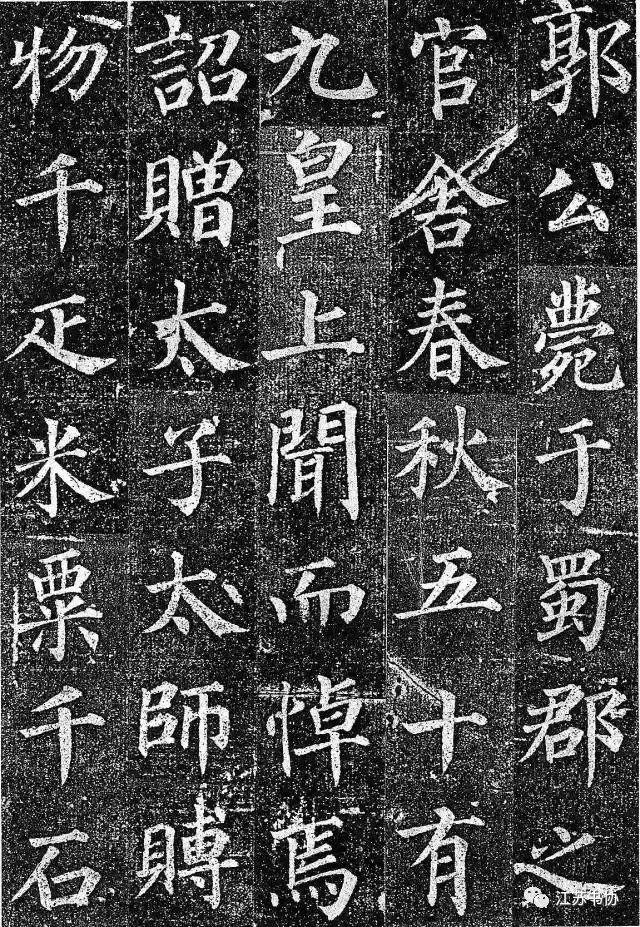 郭公薨于蜀郡之
官舍春秋五十有
九皇上聞而悼焉
詔贈太子太師賻
物千疋米粟千石
江苏书协